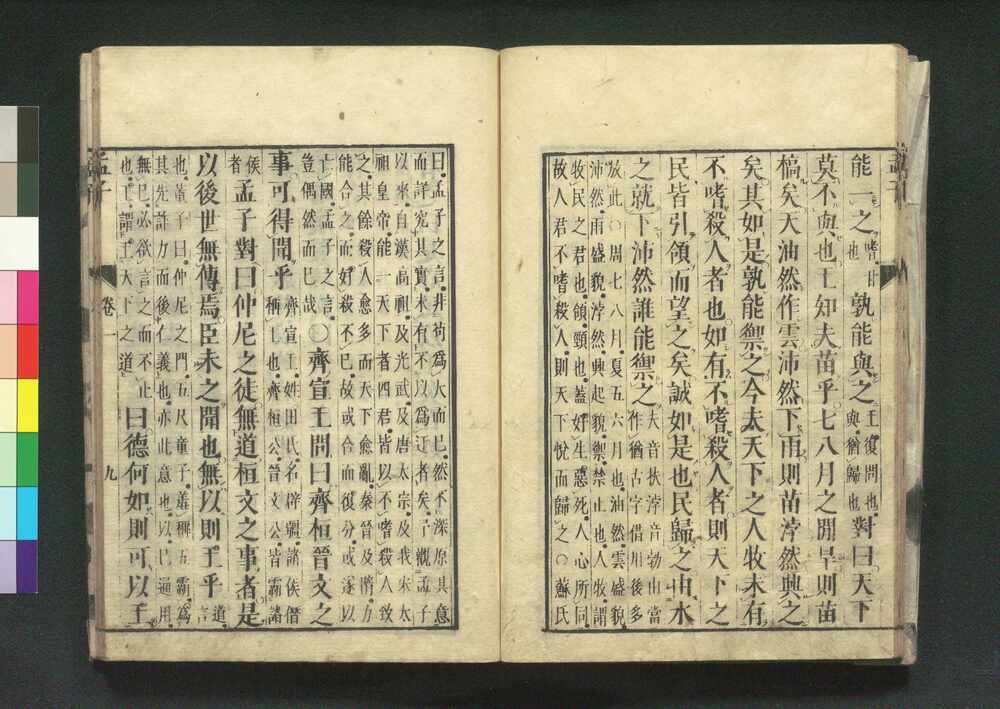 能一之嗜甘也孰能與之王復問也與猶歸也對曰天下
莫不與也王知夫苗乎七八月之閒旱則苗
槁矣天油然作雲沛然下雨則苗浡然興之
矣其如是孰能禦之今夫天下之人牧未有
不嗜殺人者也如有不嗜殺人者則天下之
民皆引領而望之矣誠如是也民歸之由水
之就下沛然誰能禦之夫音扶浡音勃由當作猶古字借用後多
放此○周七八月夏五六月也油然雲盛貌
沛然雨盛貌浡然興起貌禦禁止也人牧謂
牧民之君也領頸也蓋好生惡死人心所同
故人君不嗜殺人則天下悅而歸之○蘇氏
曰孟子之言非苟為大而已然不深原其意
而詳究其實未有不以為迂者矣予觀孟子
以來自漢高祖及光武及唐太宗及我宋太
祖皇帝能一天下者四君皆以不嗜殺人致
之其餘殺人愈多而天下愈亂秦晉及隋力
能合之而好殺不已故或合而復分或遂以
亡國孟子之言豈偶然而已哉○齊宣王問曰齊桓晉文之
事可得聞乎齊宣王姓田氏名辟彊諸侯僭稱王也齊桓公晉文公皆霸諸
侯者孟子對曰仲尼之徒無道桓文之事者是
以後世無傳焉臣未之聞也無以則王乎道言
也董子曰仲尼之門五尺童子羞稱五霸為
其先詐力而後仁義也亦此意也以已通用
無已必欲言之而不止也王謂王天下之道曰德何如則可以王
孟子
卷一
九